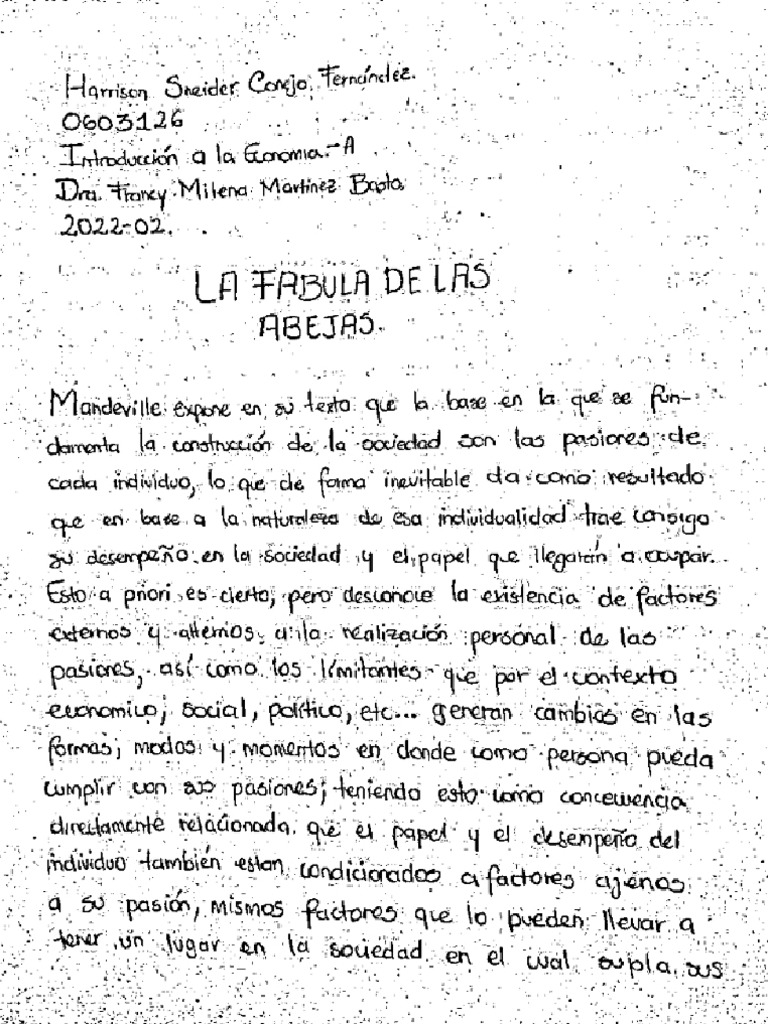 Harrison Sneider Conejo Fernández.
0603126
Introducción a la Economia.-A
Dra. Francy Milena Martinez Basto
2022-02.
LA FABULA DE LAS
ABEJAS.
Mandeville expone en su texto que la base en la que se fun-
damenta la construcción de la sociedad son las pasiones de
cada individuo, lo que de forma inevitable da como resultado
que en base a la naturaleza de esa individualidad trae consigo
su desempeño en la sociedad y el papel que llegarán a ocupar.
Esto a priori es cierto, pero desconoce la existencia de factores
externos y alternos a la realización personal de las
pasiones, así como los límitantes que por el contexto
economico, social, político, etc... generan cambios en las
formas, modos y momentos en donde como persona pueda
cumplir con sus pasiones; teniendo esto como concecuencia
directamente relacionada que el papel y el desempeño del
individuo también estan condicionados a factores ajenos
a su pasión, mismos factores que lo pueden llevar a
tener un lugar en la sociedad en el cual supla sus